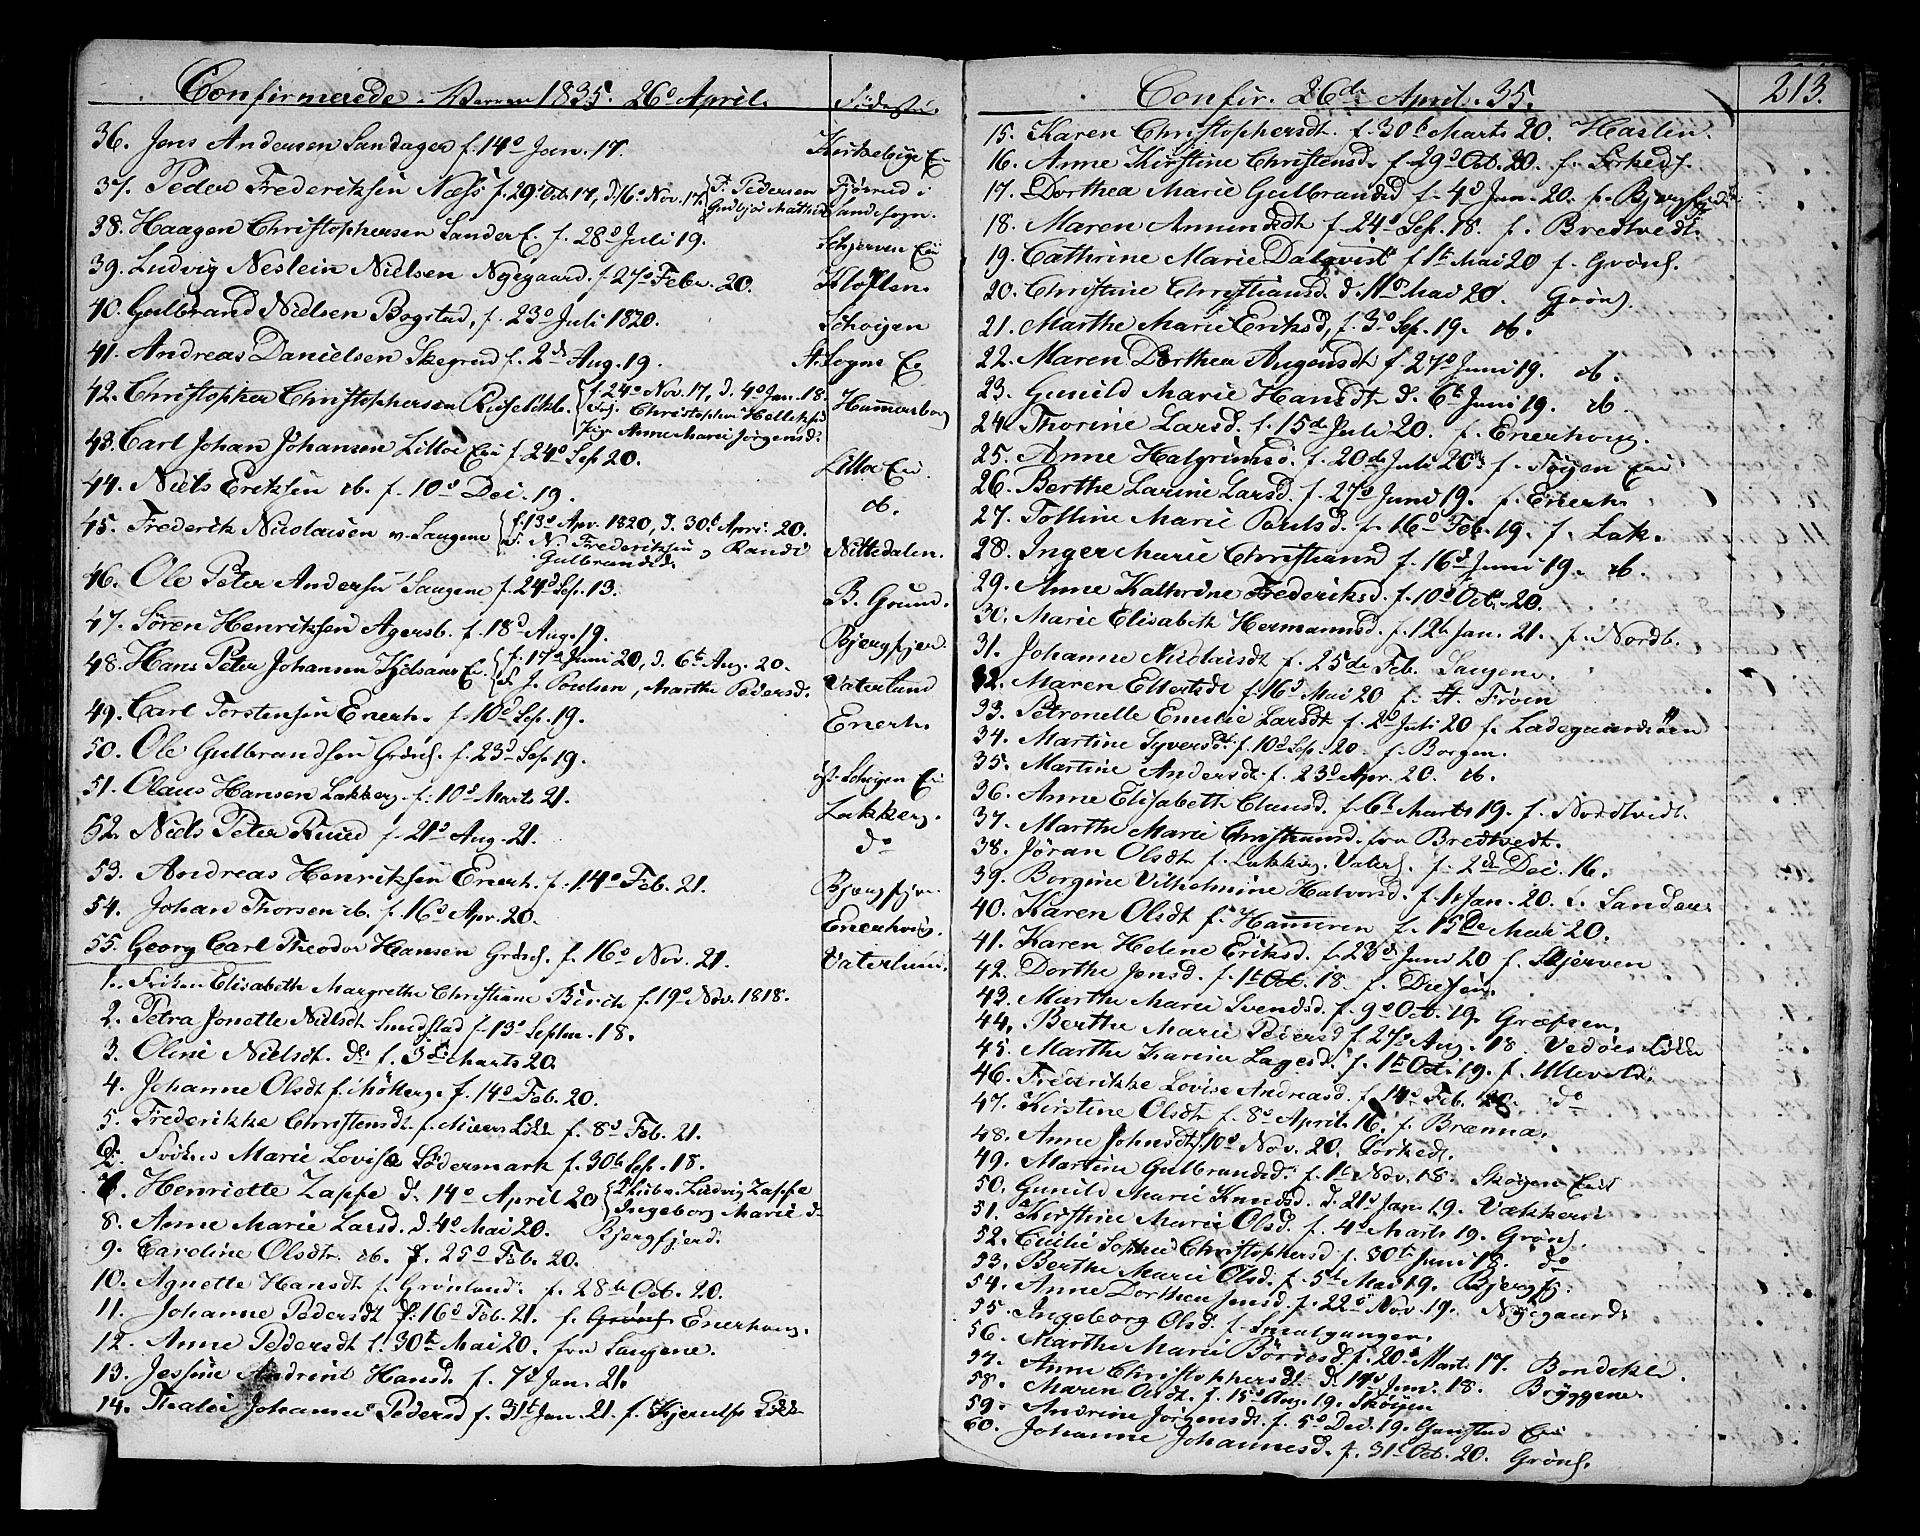 Confirmerede 1835. 26d April. Fødested.
36. Jens Andersen Sandager f. 14d Jan. 17.
37. Peder Frederiksen Næsø f. 29d Oct. 17, d. 16d Nov. 17. F. Pedersen
38. Haagen Christophersen Sander E. f. 28d Juli 19. Schjerven Eie
39. Ludvig Neslein Nielsen Nyegaard. f. 27d Febr. 20. Kloften.
40. Gulbrand Nielsen Bogstad, f. 23d Juli 1820. Schøien
41. Andreas Danielsen Skegrud f. 2d Aug. 19. A. Sogne E.
42. Christopher Christophersen f. 24d Nov. 17, d. 4d Jan. 18. Hammersborg
Christopher
Anne Marie Jørgensd.
43. Carl Johan Johansen Lilloe Eie f. 24d Sep 20. Lilloe Eie.
44. Niels Eriksen ib. f. 10d Dec. 19. ib.
45. Frederik Nicolaisen v. Saugene f. 13d Apr. 1820, d. 30t Apr. 20. Nittedalen.
F. N. Frederiksen o Randi
Gulbrandsd.
46. Ole Peter Andersen Saugene f. 24d Sep. 13. B. Grund.
47. Søren Henriksen Agersb. f. 18d Aug. 19. Bjergfjerd.
48. Hans Peter Johansen Kjelsaas E. f. 17d Juni 20, d. 6t Aug. 20. Vaterland
F. J. Poulsen, Marthe Pedersd.
49. Carl Torstensen Enerh. f. 10d Sep. 19. Enerh.
50. Ole Gulbrandsen Grøns. f. 23d Sep. 19.
51. Olaus Hansen Lakkeg. f. 10d Marts 21. Schøien E.
52. Niels Peter Ruud f. 21d Aug. 21. Lakkeg.
53. Andreas Henriksen Enerh. f. 14d Feb. 21. Bjergfjer.
54. Johan Thorsen ib. f. 16d Apr. 20. Enerhoug.
55. Georg Carl Theodor Hansen Grøns. f. 16d Nov. 21. Vaterland.
1. Frøken Elisabeth Margrethe Christiane Birch f. 19d Nov. 1818.
2. Petra Jonette Nielsdt. Smedstad f. 13d Septbr. 18.
3. Oline Nielsdt. do f. 3d Marts 20.
4. Johanne Olsdt f. f. 14d Feb. 20.
5. Frederikke Christensdt. f. Løkke f. 8d Feb. 21.
6. Frøken Marie Lovise Södermark f. 30t Sep. 18.
7. Henriette Zapfe d. 14d April 20 Ludvig Zapfe
Ingeborg Marie
8. Anne Marie Larsd. d. 4d Mai 20. Bjergfjerd.
9. Caroline Olsdtr. ib. f. 25d Feb. 20.
10. Agnette Hansdt f. Grønland. f. 28de Oct. 20.
11. Johanne Pedersdt f. 16d Feb. 21. f. Grøns Enerhoug.
12. Anne Pedersdt f. 30te Mai 20. fra Saugene.
13. Jessine Andrine Hansd. f. 7d Jan. 21.
14. Thalei Johanne Pedersd f. 31t Jan. 21. f. Kjerulfs Løkke
Confir. 26de April. 35. 213.
15. Karen Christophersdt. f. 30t Marts 20. Haslen.
16. Anne Kirstine Christensd. f. 29d Oct. 20. f. Sorkeds.
17. Dorthea Marie Gulbrandsd f. 4d Jun. 20. f. Bjergfjerd.
18. Maren Amundsdt f. 24d Sep. 18. f. Bredtvedt.
19. Cathrine Marie Dalqvist f. 1t Mai 20 f. Grøns.
20. Christine Christiansd. d. 11d Mai 20. Grøns.
21. Marthe Marie Eriksd, f. 3d Sep. 19. ib.
22. Maren Dorthea Augensdt f. 27d Juni 19. ib.
23. Gunild Marie Hansdt d. 6t Juni 19. ib.
24. Thorine Larsd. f. 15de Juli 20. f. Enerhoug.
25. Anne Halgrimsd. f. 20de Juli 20 f. Tøyen Eie
26. Berthe Larine Larsd. f. 27d Juni 19. f. Enerh.
27. Tolline Marie Paulsd. f. 16d Feb. 19. f. Lak.
28. Inger Marie Christiansd f. 16d Juni 19. ib.
29. Anne Kathrine Frederiksd. f. 10d Oct. 20.
30. Marie Elisabeth Hermannsd. f. 12t Jan. 21. f. Nordb.
31. Johanne Nicolaisdt f. 25de Feb. Saugene.
32. Maren Ellertsdt f. 16d Mai 20 f. St. Frøen
33. Petronelle Emilie Larsdt f. 2d Juli 20 f. Ladegaardsøen
34. Martine Syversdt. f. 10d Sep. 20. f. Borgen.
35. Martine Andersdt. f. 23d Apr. 20. ib.
36. Anne Elisabeth Clausd. f. 6t Marts 19. f. Nordtvedt.
37. Marthe Marie Christiansd. fra Bredtvedt.
38. Jøran Olsdt f. Lakkeg. Vaters. f. 2de Dec. 16.
39. Borgine Vilhelmine Halvorsd. f. 1t Jan. 20. f. Sander.
40. Karen Olsdt f. Hammeren f. 15de Mai 20.
41. Karen Helene Eriksd. f. 23d Juni 20 f. Skjerven
42. Dorthe Jensd. f. 1t Oct. 18. f. Disen.
43. Marthe Marie Svendsd. f. 9d Oct. 19. Græfsen.
44. Berthe Marie Pedersd f. 27d Aug. 18. Vedøes Løkke
45. Marthe Karine Lagesd. f. 1t Oct. 19. f. Ullevold.
46. Frederikke Lovise Andreasd. f. 14d Feb. 20. do
47. Kirstine Olsdt f. 8d April. 16. f. Brænna.
48. Anne Johnsdt. 10d Nov. 20. Sorkedt.
49. Martine Gulbrandsd. f. 1t Nov. 18. Skøyen Eie
50. Gunild Marie Knudsd. d. 21d Jan. 19. Vækkerø
51. Kirstine Marie Olsd. f. 4d Marts 19. Grøns.
52. Emilie Sophie Christophersd f. 30te Juni 18. do
53. Berthe Marie Olsd. f. 5d Mai 19. Bjergfj.
54. Anne Dorthea Jensd. f. 22d Nov. 19. Nyegaard.
55. Ingeborg Olsd. f. Smalgangen.
56. Marthe Marie Børresd. f. 20d Mart. 17. Bondekl.
57. Anne Christophersdt. d. 14d Juni. 18. Bryggene.
58. Maren Olsdt. f. 15d Aug. 19. Skøyen
59. Andrine Jørgensdt. f. 5d Dec. 19. Gaustad Eie
60. Johanne Johannesd. f. 31t Oct. 20. Grøns.